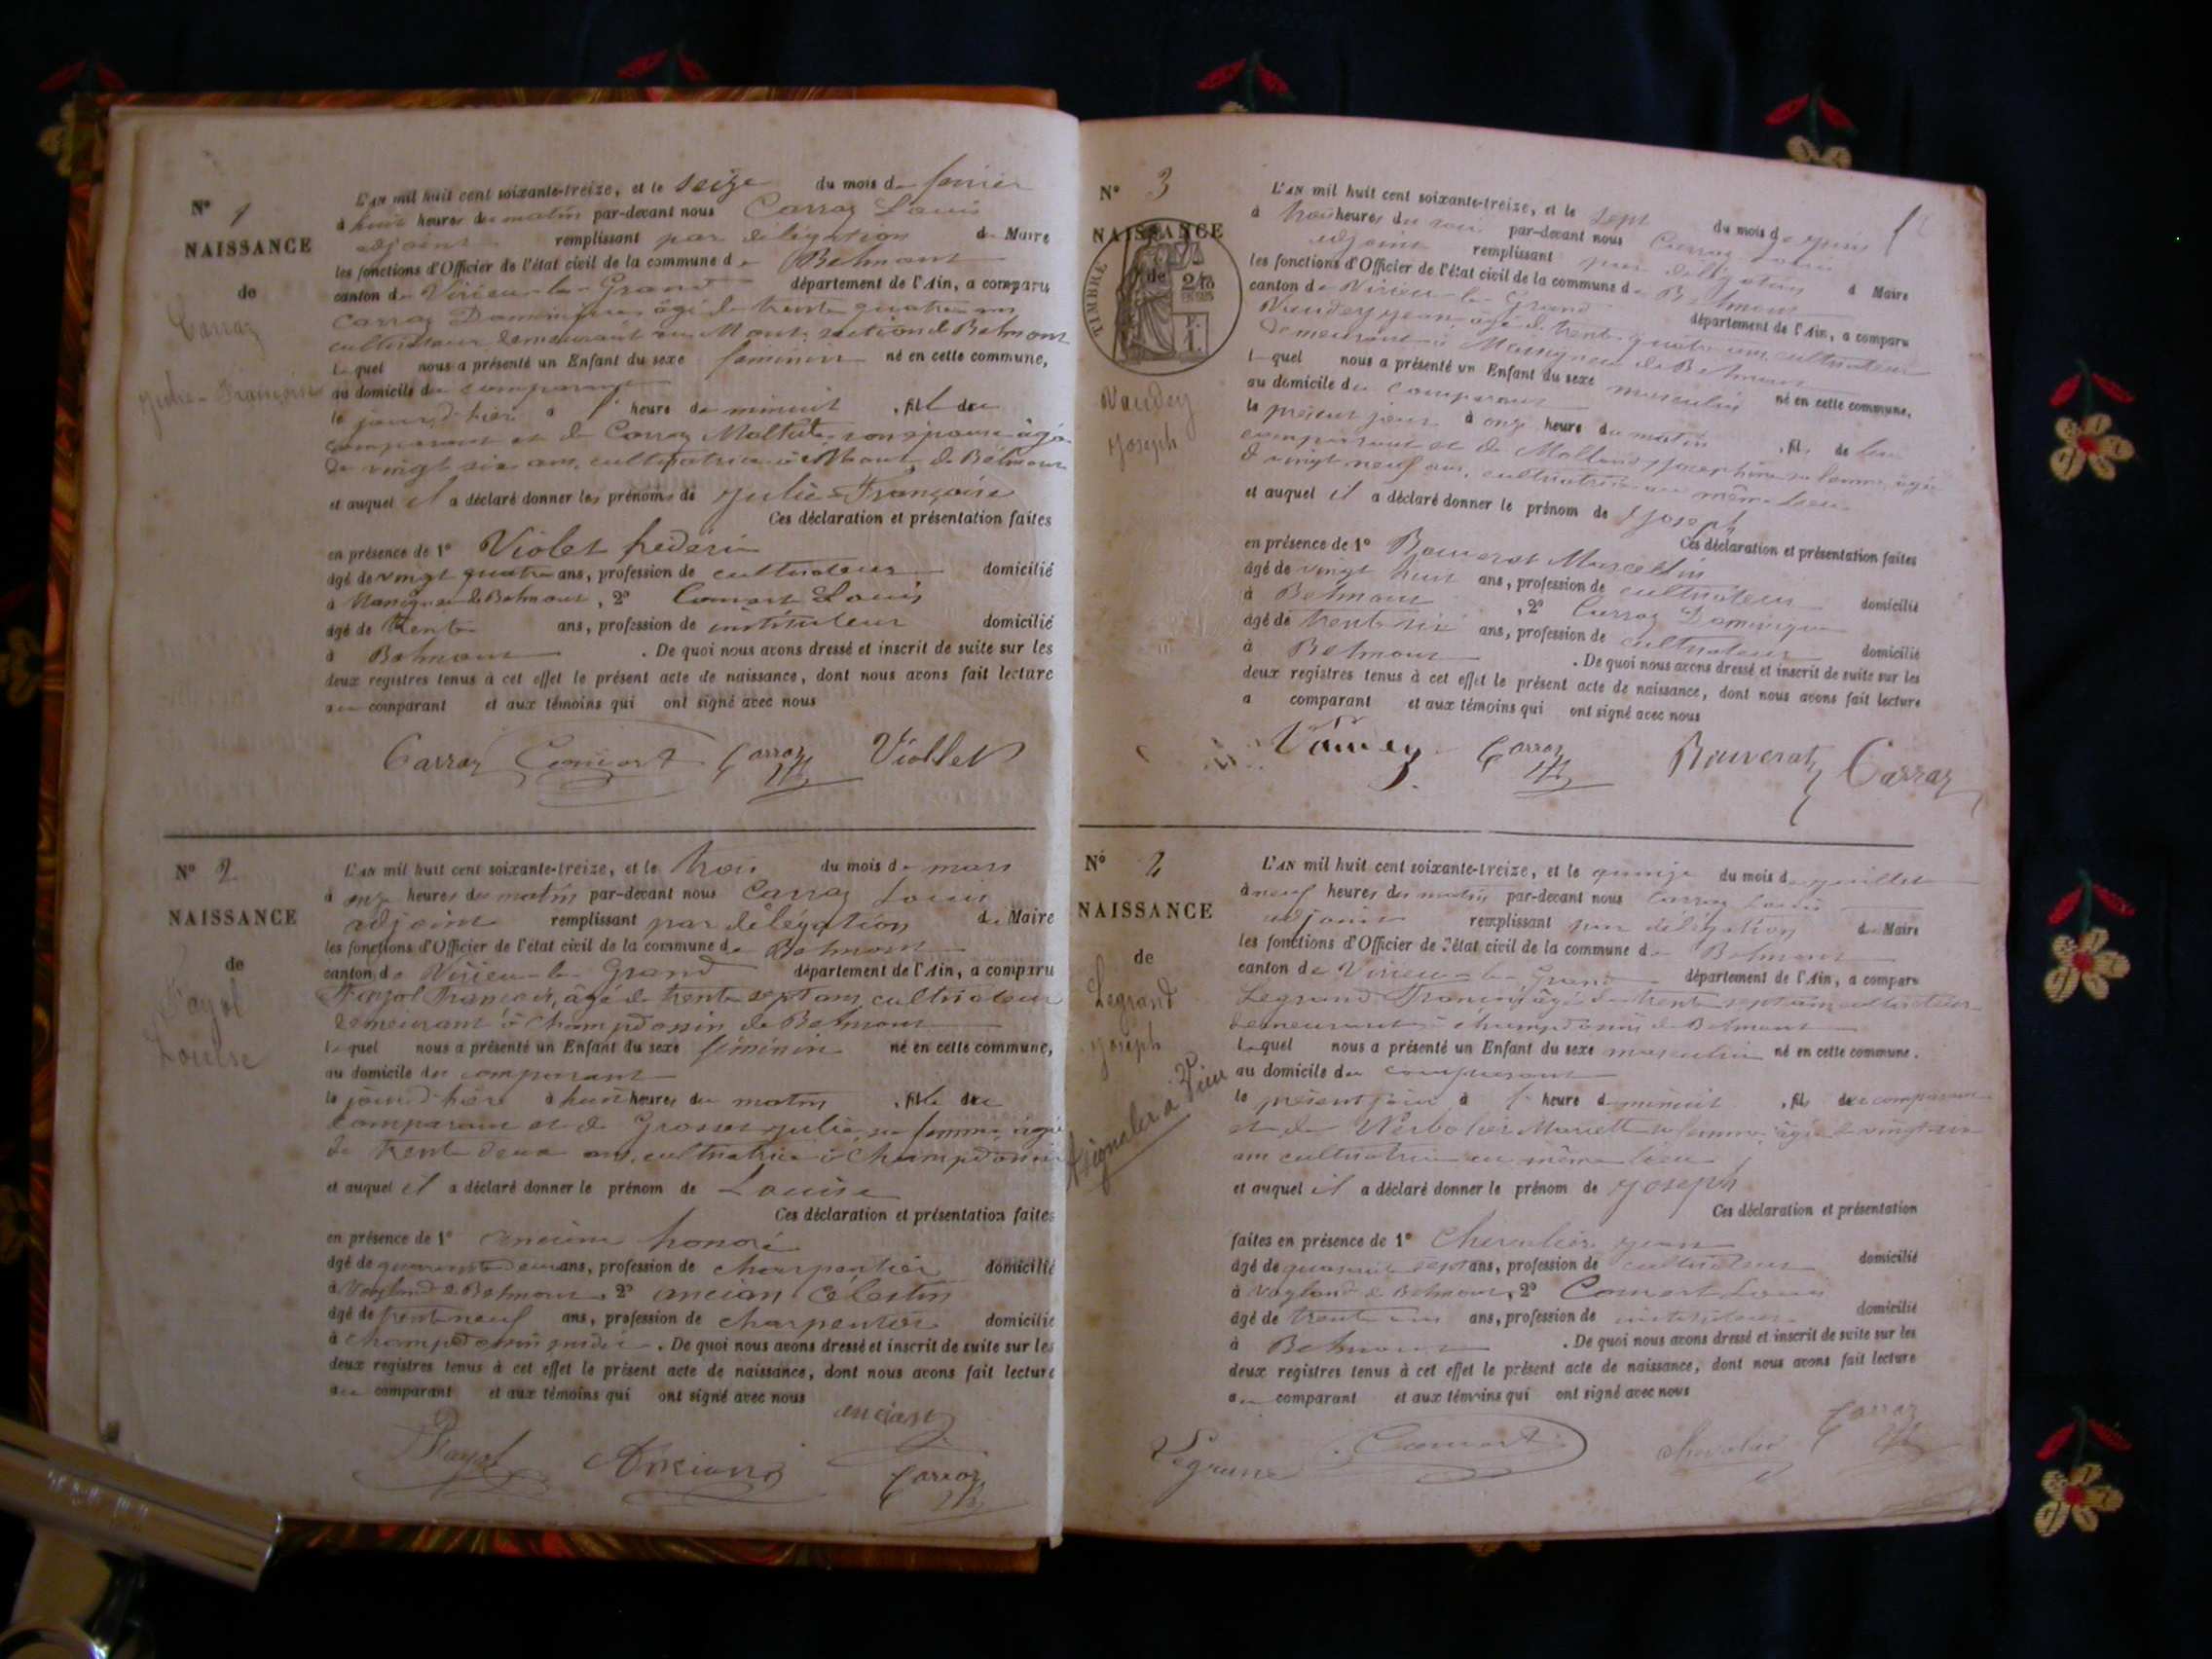 N° 1
NAISSANCE
de
Carraz
Julie-Françoise
L'AN mil huit cent soixante-treize, et le seize du mois de février
à huit heures du matin par-devant nous Carraz Louis
adjoint remplissant par délégation du Maire
les fonctions d'Officier de l'état civil de la commune de Belmont
canton de Virieu-le-Grand département de l'Ain, a comparu
Carraz Dominique âgé de trente quatre ans
cultivateur demeurant au Mont section de Belmont
lequel nous a présenté un Enfant du sexe féminin né en cette commune,
au domicile du comparant
le jour d'hier à heure de minuit , fille du
comparant et de Carraz son épouse âgée
de vingt six ans, cultivatrice à Mont de Belmont
et auquel il a déclaré donner les prénoms de Julie-Françoise
Ces déclaration et présentation faites
en présence de 1° Violet frédéric
âgé de vingt quatre ans, profession de cultivateur domicilié
à de Belmont, 2° Comart Louis
âgé de trente ans, profession de instituteur domicilié
à Belmont . De quoi nous avons dressé et inscrit de suite sur les
deux registres tenus à cet effet le présent acte de naissance, dont nous avons fait lecture
au comparant et aux témoins qui ont signé avec nous
Carraz Comart Carraz Viollet
N° 2
NAISSANCE
de
Fayol
Louise
L'AN mil huit cent soixante-treize, et le trois du mois de mars
à onze heures du matin par-devant nous Carraz Louis
adjoint remplissant par délégation du Maire
les fonctions d'Officier de l'état civil de la commune de Belmont
canton de Virieu-le-Grand département de l'Ain, a comparu
Fayol François, âgé de trente sept ans, cultivateur
demeurant à Champdossin de Belmont
lequel nous a présenté un Enfant du sexe féminin né en cette commune,
au domicile du comparant
le jour d'hier à huit heures du matin , fille du
comparant et de Grosset Julie, sa femme, âgée
de trente deux ans, cultivatrice à Champdossin
et auquel il a déclaré donner le prénom de Louise
Ces déclaration et présentation faites
en présence de 1° ancian honoré
âgé de quarante deux ans, profession de charpentier domicilié
à Vogland de Belmont, 2° ancian Célestin
âgé de trente neuf ans, profession de charpentier domicilié
à . De quoi nous avons dressé et inscrit de suite sur les
deux registres tenus à cet effet le présent acte de naissance, dont nous avons fait lecture
au comparant et aux témoins qui ont signé avec nous
ancian
Fayol Ancian
Carraz
N° 3
NAISSANCE
de
TIMBRE
Vaudey
Joseph
L'AN mil huit cent soixante-treize, et le sept du mois de juin
à trois heures du soir par-devant nous Carraz Louis
adjoint remplissant par délégation d Maire
les fonctions d'Officier de l'état civil de la commune de Belmont
canton de Virieu-le-Grand département de l'Ain, a comparu
Vaudey Jean âgé de trente quatre ans, cultivateur
demeurant à de Belmont
lequel nous a présenté un Enfant du sexe masculin né en cette commune,
au domicile du comparant
le présent jour à onze heure du matin , fils de
comparant et de Joséphine sa femme, âgée
de vingt neuf ans, cultivatrice au même lieu
et auquel il a déclaré donner le prénom de Joseph
Ces déclaration et présentation faites
en présence de 1° Bouverat Marcellin
âgé de vingt huit ans, profession de cultivateur domicilié
à Belmont , 2° Carraz Dominique
âgé de trente six ans, profession de cultivateur domicilié
à Belmont . De quoi nous avons dressé et inscrit de suite sur les
deux registres tenus à cet effet le présent acte de naissance, dont nous avons fait lecture
a comparant et aux témoins qui ont signé avec nous
Vaudey Carraz Bouverat Carraz
N°
NAISSANCE
de
Legrand
Joseph
A signaler à Vieu
L'AN mil huit cent soixante-treize, et le quinze du mois de juillet
à neuf heures du matin par-devant nous Carraz Louis
adjoint remplissant par délégation du Maire
les fonctions d'Officier de l'état civil de la commune de Belmont
canton de Virieu-le-Grand département de l'Ain, a comparu
Legrand François âgé de trente sept ans, cultivateur
demeurant à Champdossin de Belmont
lequel nous a présenté un Enfant du sexe masculin né en cette commune.
au domicile du comparant
le présent jour à heure de minuit , fils du comparant
et de Mariette sa femme âgée de vingt six
ans cultivatrice au même lieu
et auquel il a déclaré donner le prénom de Joseph
Ces déclaration et présentation
faites en présence de 1° Chevalier Jean
âgé de quarante sept ans, profession de cultivateur domicilié
à Vogland de Belmont, 2° Comart Louis
âgé de trente ans, profession de instituteur domicilié
à Belmont . De quoi nous avons dressé et inscrit de suite sur les
deux registres tenus à cet effet le présent acte de naissance, dont nous avons fait lecture
au comparant et aux témoins qui ont signé avec nous
Legrand Comart chevalier Carraz